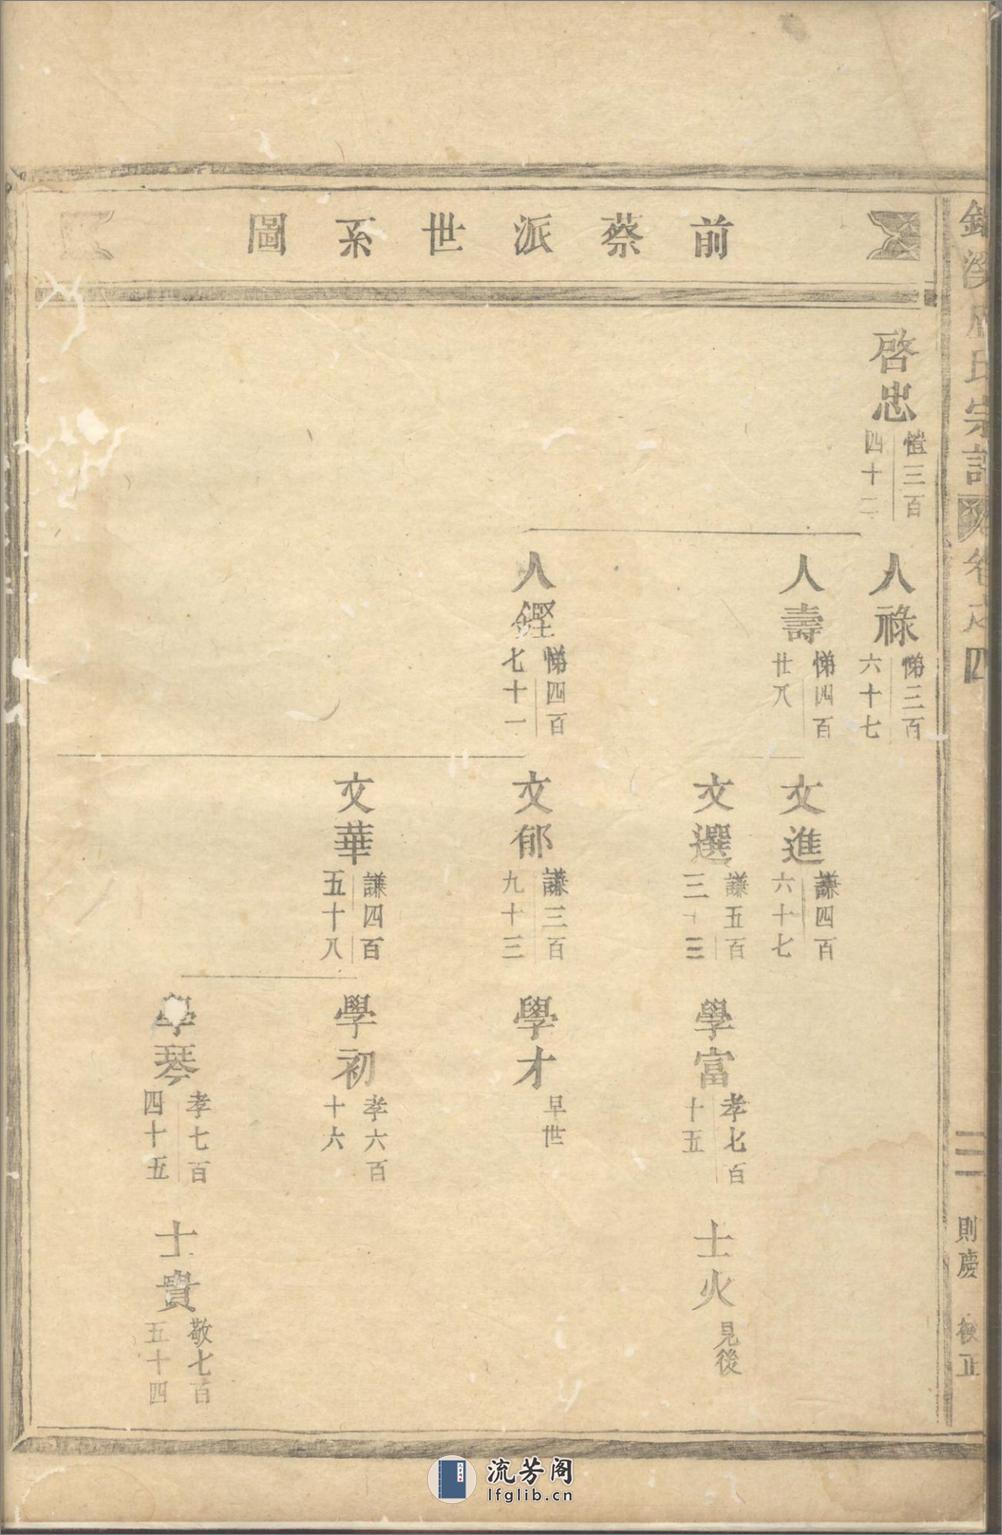 前蔡派世系圖
啓忠
愷三百
四十二
人祿
悌三百
六十七
人壽
悌四百
廿八
人鏗
悌四百
七十一
文進
謙四百
六十七
文選
謙五百
三十三
文郁
謙三百
九十三
文華
謙四百
五十八
學富
孝七百
十五
學才
早世
學初
孝六百
十六
學琴
孝七百
四十五
士火
見後
士貴
敬七百
五十四
氏宗譜
卷之四
則慶 校正
流芳阁
lfglib.cn